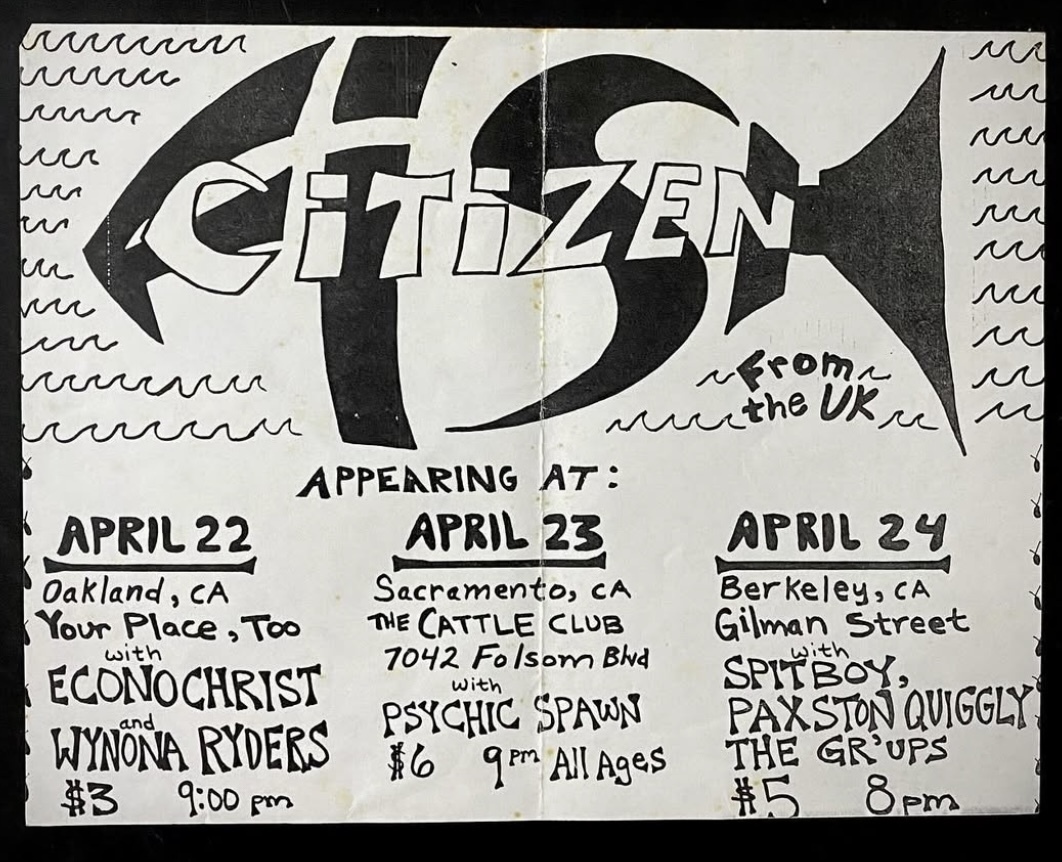 CiTiZEN
FISH
From
the UK
APPEARING AT:
APRIL 22
Oakland, CA
Your Place, Too
with
ECONOCHRIST
and
WYNONA RYDERS
$3 9:00 pm
APRIL 23
Sacramento, CA
THE CATTLE CLUB
7042 Folsom Blvd
with
PSYCHIC SPAWN
$6 9pm All Ages
APRIL 24
Berkeley, CA
Gilman Street
with
SPITBOY,
PAXSTON QUIGGLY
THE GR'UPS
$5 8pm